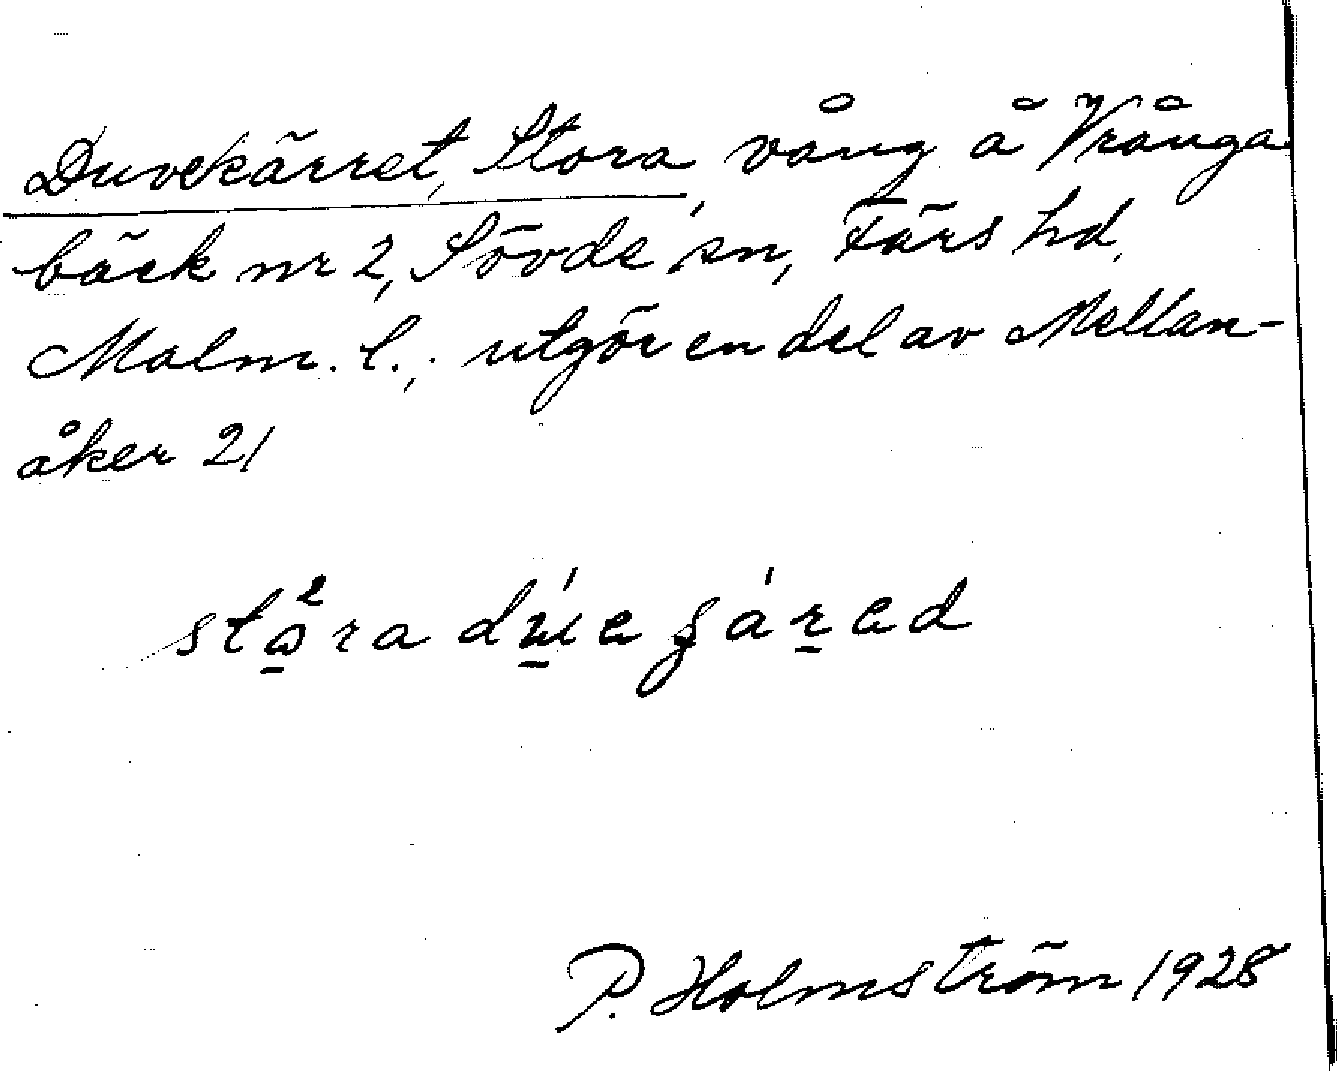 Duvekärret, Stora, vång å Vrånga
bäck nr 2, Sövde sn, Färs hd,
Malm. l., utgör en del av Mellan-
åker 21
P. Holmström 1928